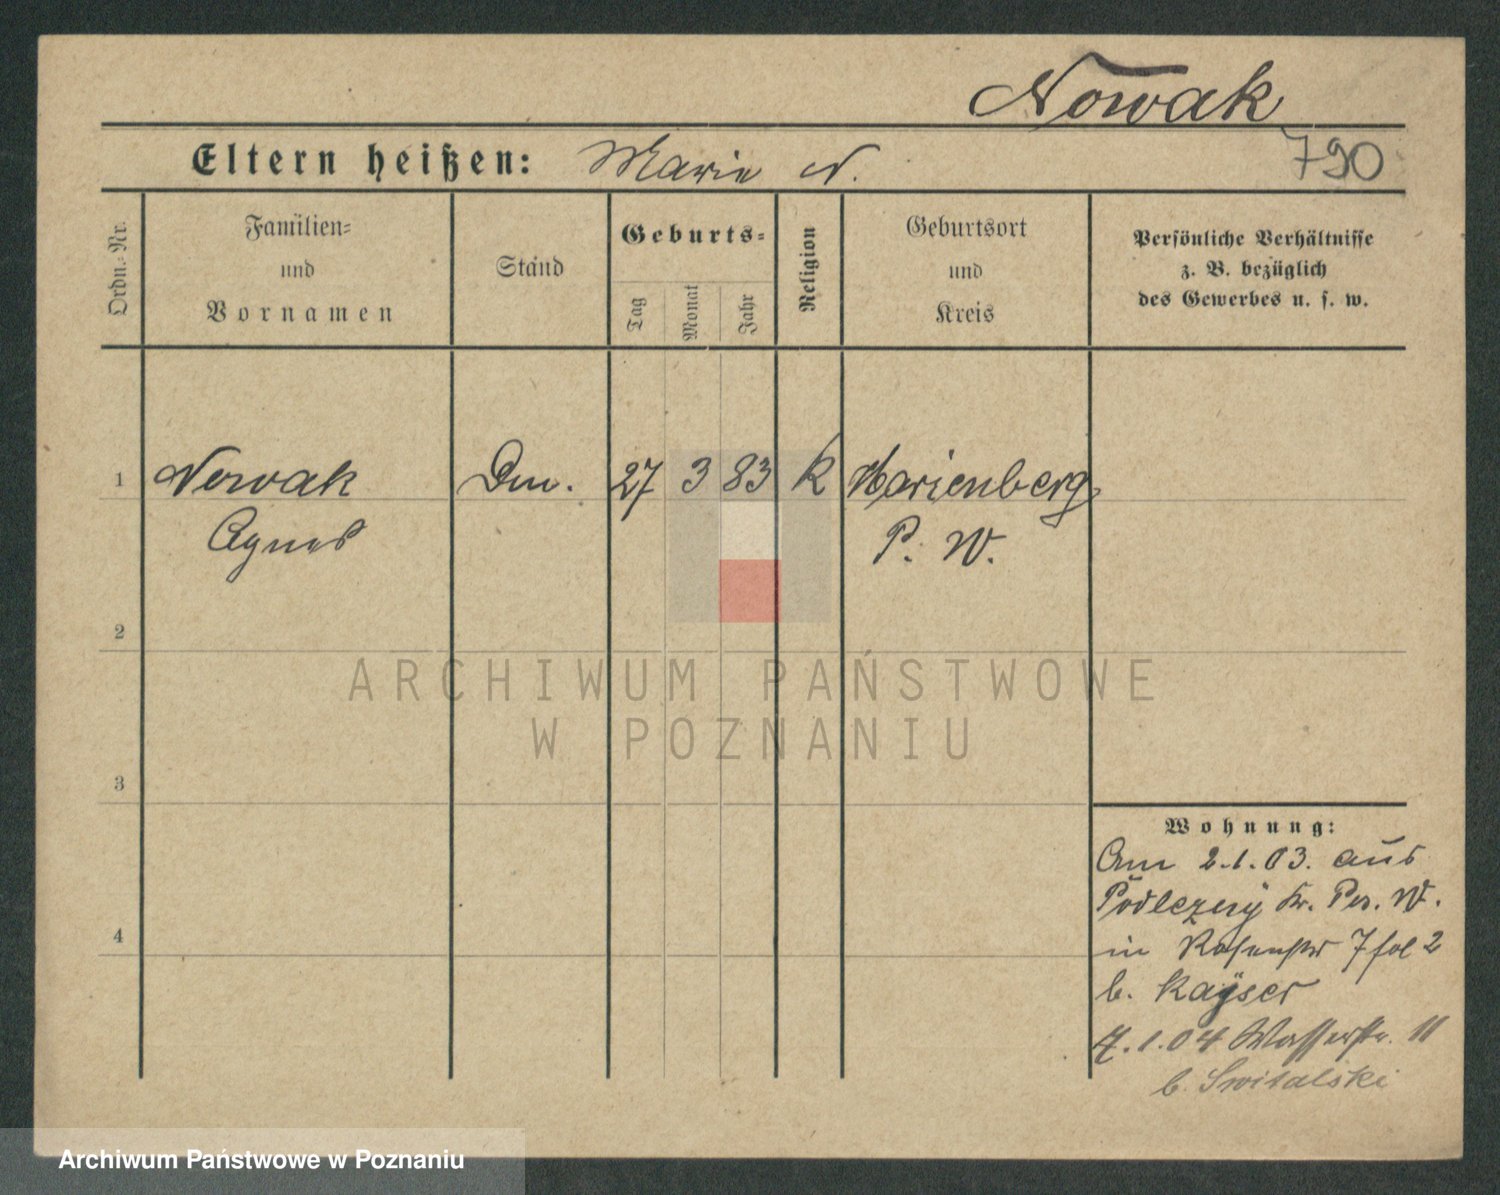 Nowak
Eltern heißen: Marie N.
790
Ordn.-Nr.
Familien-
und
Vornamen
Stand
Geburts-
Tag
Monat
Jahr
Religion
Geburtsort
und
Kreis
Persönliche Verhältnisse
z. B. bezüglich
des Gewerbes u. s. w.
1 Nowak 27 3 83 K Marienberg
Agnes P. W.
2
ARCHIWUM PAŃSTWOWE
W POZNANIU
3
Wohnung:
Am 2.1.03. aus
Kr. Pos. W.
4
in Rosenstr 7 fol 2
b. Kayser
7.1.04 Wasserstr. 11
b. Switalski
Archiwum Państwowe w Poznaniu